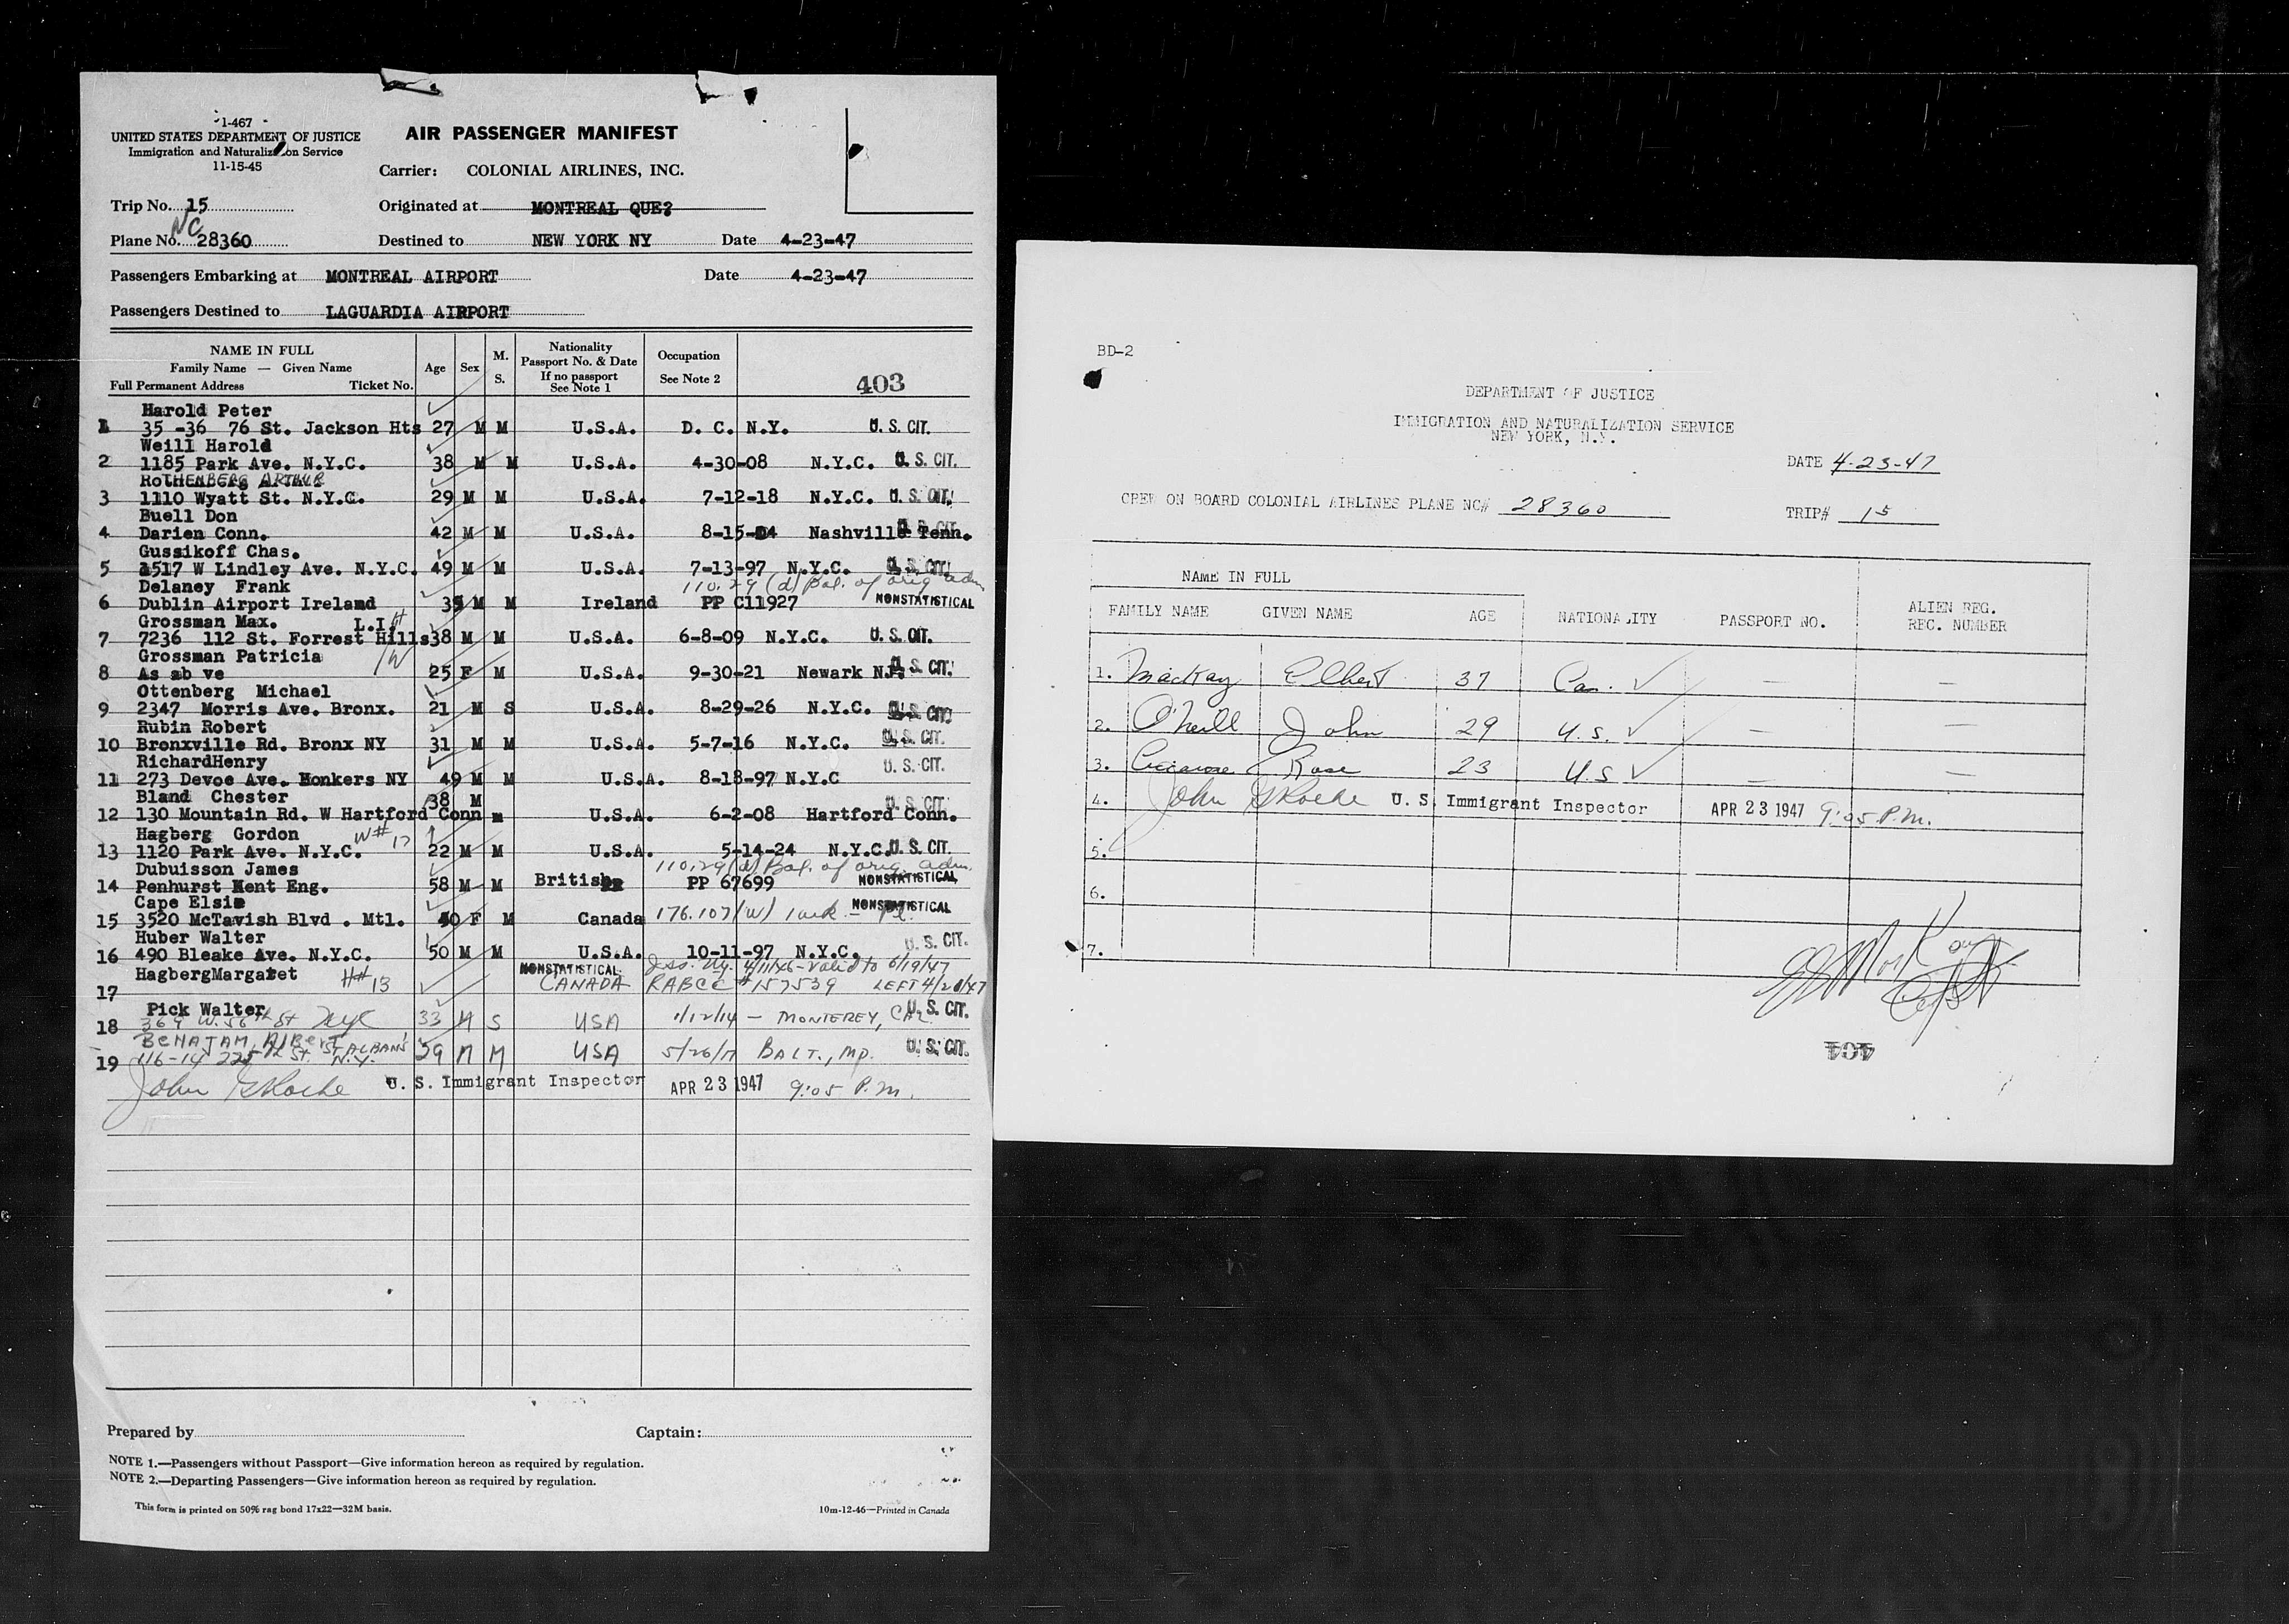 I-467
UNITED STATES DEPARTMENT OF JUSTICE
Immigration and Naturalization Service
11-15-45
AIR PASSENGER MANIFEST
Carrier: COLONIAL AIRLINES, INC.
Trip No. 15
Originated at MONTREAL QUE?
NC
Plane No. 28360
Destined to NEW YORK NY Date 4-23-47
Passengers Embarking at MONTREAL AIRPORT Date 4-23-47
Passengers Destined to LAGUARDIA AIRPORT
NAME IN FULL
Family Name — Given Name
Full Permanent Address Ticket No.
Age Sex M. S.
Nationality
Passport No. & Date
If no passport
See Note 1
Occupation
See Note 2
403
Harold Peter
1 35 -36 76 St. Jackson Hts 27 M M U.S.A. D. C. N.Y. U. S. CIT.
Weill Harold
2 1185 Park Ave. N.Y.C. 38 M M U.S.A. 4-30-08 N.Y.C. U. S. CIT.
RoTHENBERG ARTHUR
3 1110 Wyatt St. N.Y.C. 29 M M U.S.A. 7-12-18 N.Y.C. U. S. CIT.
Buell Don
4 Darien Conn. 42 M M U.S.A. 8-15-04 Nashville Tenn. U. S. CIT.
Gussikoff Chas.
5 1517 W Lindley Ave. N.Y.C. 49 M M U.S.A. 7-13-97 N.Y.C. U. S. CIT.
Delaney Frank 110.29 (d) Bal. of orig adm
6 Dublin Airport Ireland 35 M M Ireland PP C11927 NONSTATISTICAL
Grossman Max. L.I. H
7 7236 112 St. Forrest Hills 38 M M U.S.A. 6-8-09 N.Y.C. U. S. CIT.
Grossman Patricia W
8 As ab ve 25 F M U.S.A. 9-30-21 Newark N.J. U. S. CIT.
Ottenberg Michael
9 2347 Morris Ave. Bronx. 21 M S U.S.A. 8-29-26 N.Y.C. U. S. CIT.
Rubin Robert
10 Bronxville Rd. Bronx NY 31 M M U.S.A. 5-7-16 N.Y.C. U. S. CIT.
RichardHenry
11 273 Devoe Ave. Honkers NY 49 M M U.S.A. 8-18-97 N.Y.C U. S. CIT.
Bland Chester 38 M
12 130 Mountain Rd. W Hartford Conn m U.S.A. 6-2-08 Hartford Conn. U. S. CIT.
Hagberg Gordon W# 17
13 1120 Park Ave. N.Y.C. 22 M M U.S.A. 5-14-24 N.Y.C. U. S. CIT.
Dubuisson James 110.29 (d) Bal. of orig adm.
14 Penhurst Kent Eng. 58 M M British PP 67699 NONSTATISTICAL
Cape Elsie
15 3520 McTavish Blvd . Mtl. 50 F M Canada 176.107 (w) NONSTATISTICAL
Huber Walter
16 490 Bleake Ave. N.Y.C. 50 M M U.S.A. 10-11-97 N.Y.C. U. S. CIT.
HagbergMargaret H# 13 NONSTATISTICAL Iss. Ny. 4/11/46 - Valid to 6/19/47
17 CANADA RABCC # 157539 LEFT 4/20/47
Pick Walter
18 369 W. 56th St NYC 33 M S USA 1/12/14 - MONTEREY, CAL. U. S. CIT.
BENATAM, AlBerT
19 116-14 225th St. ST ALBANS N.Y. 29 M M USA 5/26/17 BALT., MD. U. S. CIT.
John G Roche U. S. Immigrant Inspector APR 23 1947 9:05 P.M.
Prepared by Captain:
NOTE 1.—Passengers without Passport—Give information hereon as required by regulation.
NOTE 2.—Departing Passengers—Give information hereon as required by regulation.
This form is printed on 50% rag bond 17x22—32M basis. 10m-12-46—Printed in Canada
BD-2
DEPARTMENT OF JUSTICE
IMMIGRATION AND NATURALIZATION SERVICE
NEW YORK, N.Y.
DATE 4-23-47
CREW ON BOARD COLONIAL AIRLINES PLANE NC# 28360 TRIP# 15
NAME IN FULL
FAMILY NAME GIVEN NAME AGE NATIONALITY PASSPORT NO. ALIEN REG. REC. NUMBER
1. MacKay Elbert 37 Can. — —
2. O'Neill John 29 U.S. — —
3. Rose 23 U.S — —
4. John G Roche U. S. Immigrant Inspector APR 23 1947 9:05 P.M.
5.
6.
7.
MacKay
Capt
404